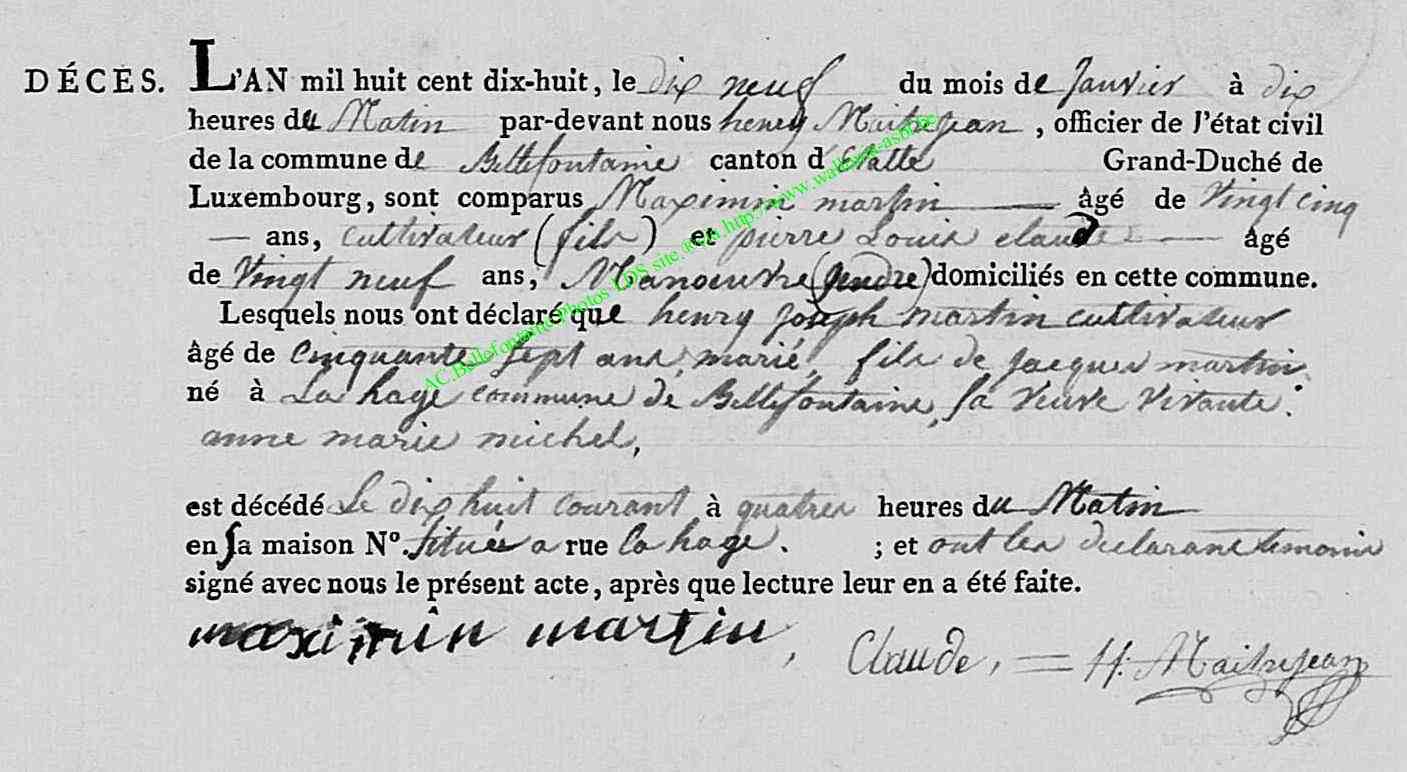 DÉCES. L'AN mil huit cent dix-huit, le dix neuf du mois de Janvier à dix
heures du Matin par-devant nous henry Maitrejean, officier de l'état civil
de la commune de Bellefontaine canton d'Etalle Grand-Duché de
Luxembourg, sont comparus Maximin martin âgé de Vingt cinq
— ans, Cultivateur (fils) et pierre Louis claude âgé
de Vingt neuf ans, Manoeuvre (gendre) domiciliés en cette commune.
Lesquels nous ont déclaré que henry joseph martin cultivateur
âgé de Cinquante Sept ans, marié, fils de jacques martin
né à La hage commune de Bellefontaine, sa Veuve Vivante.
anne marie michel,
est décédé Le dix huit courant à quatres heures du Matin
en sa maison N°. Située a rue la hage. ; et ont les declarant temoin
signé avec nous le présent acte, après que lecture leur en a été faite.
maximin martin, Claude, = H. Maitrejean
AC.Bellefontaine Photos LDS site